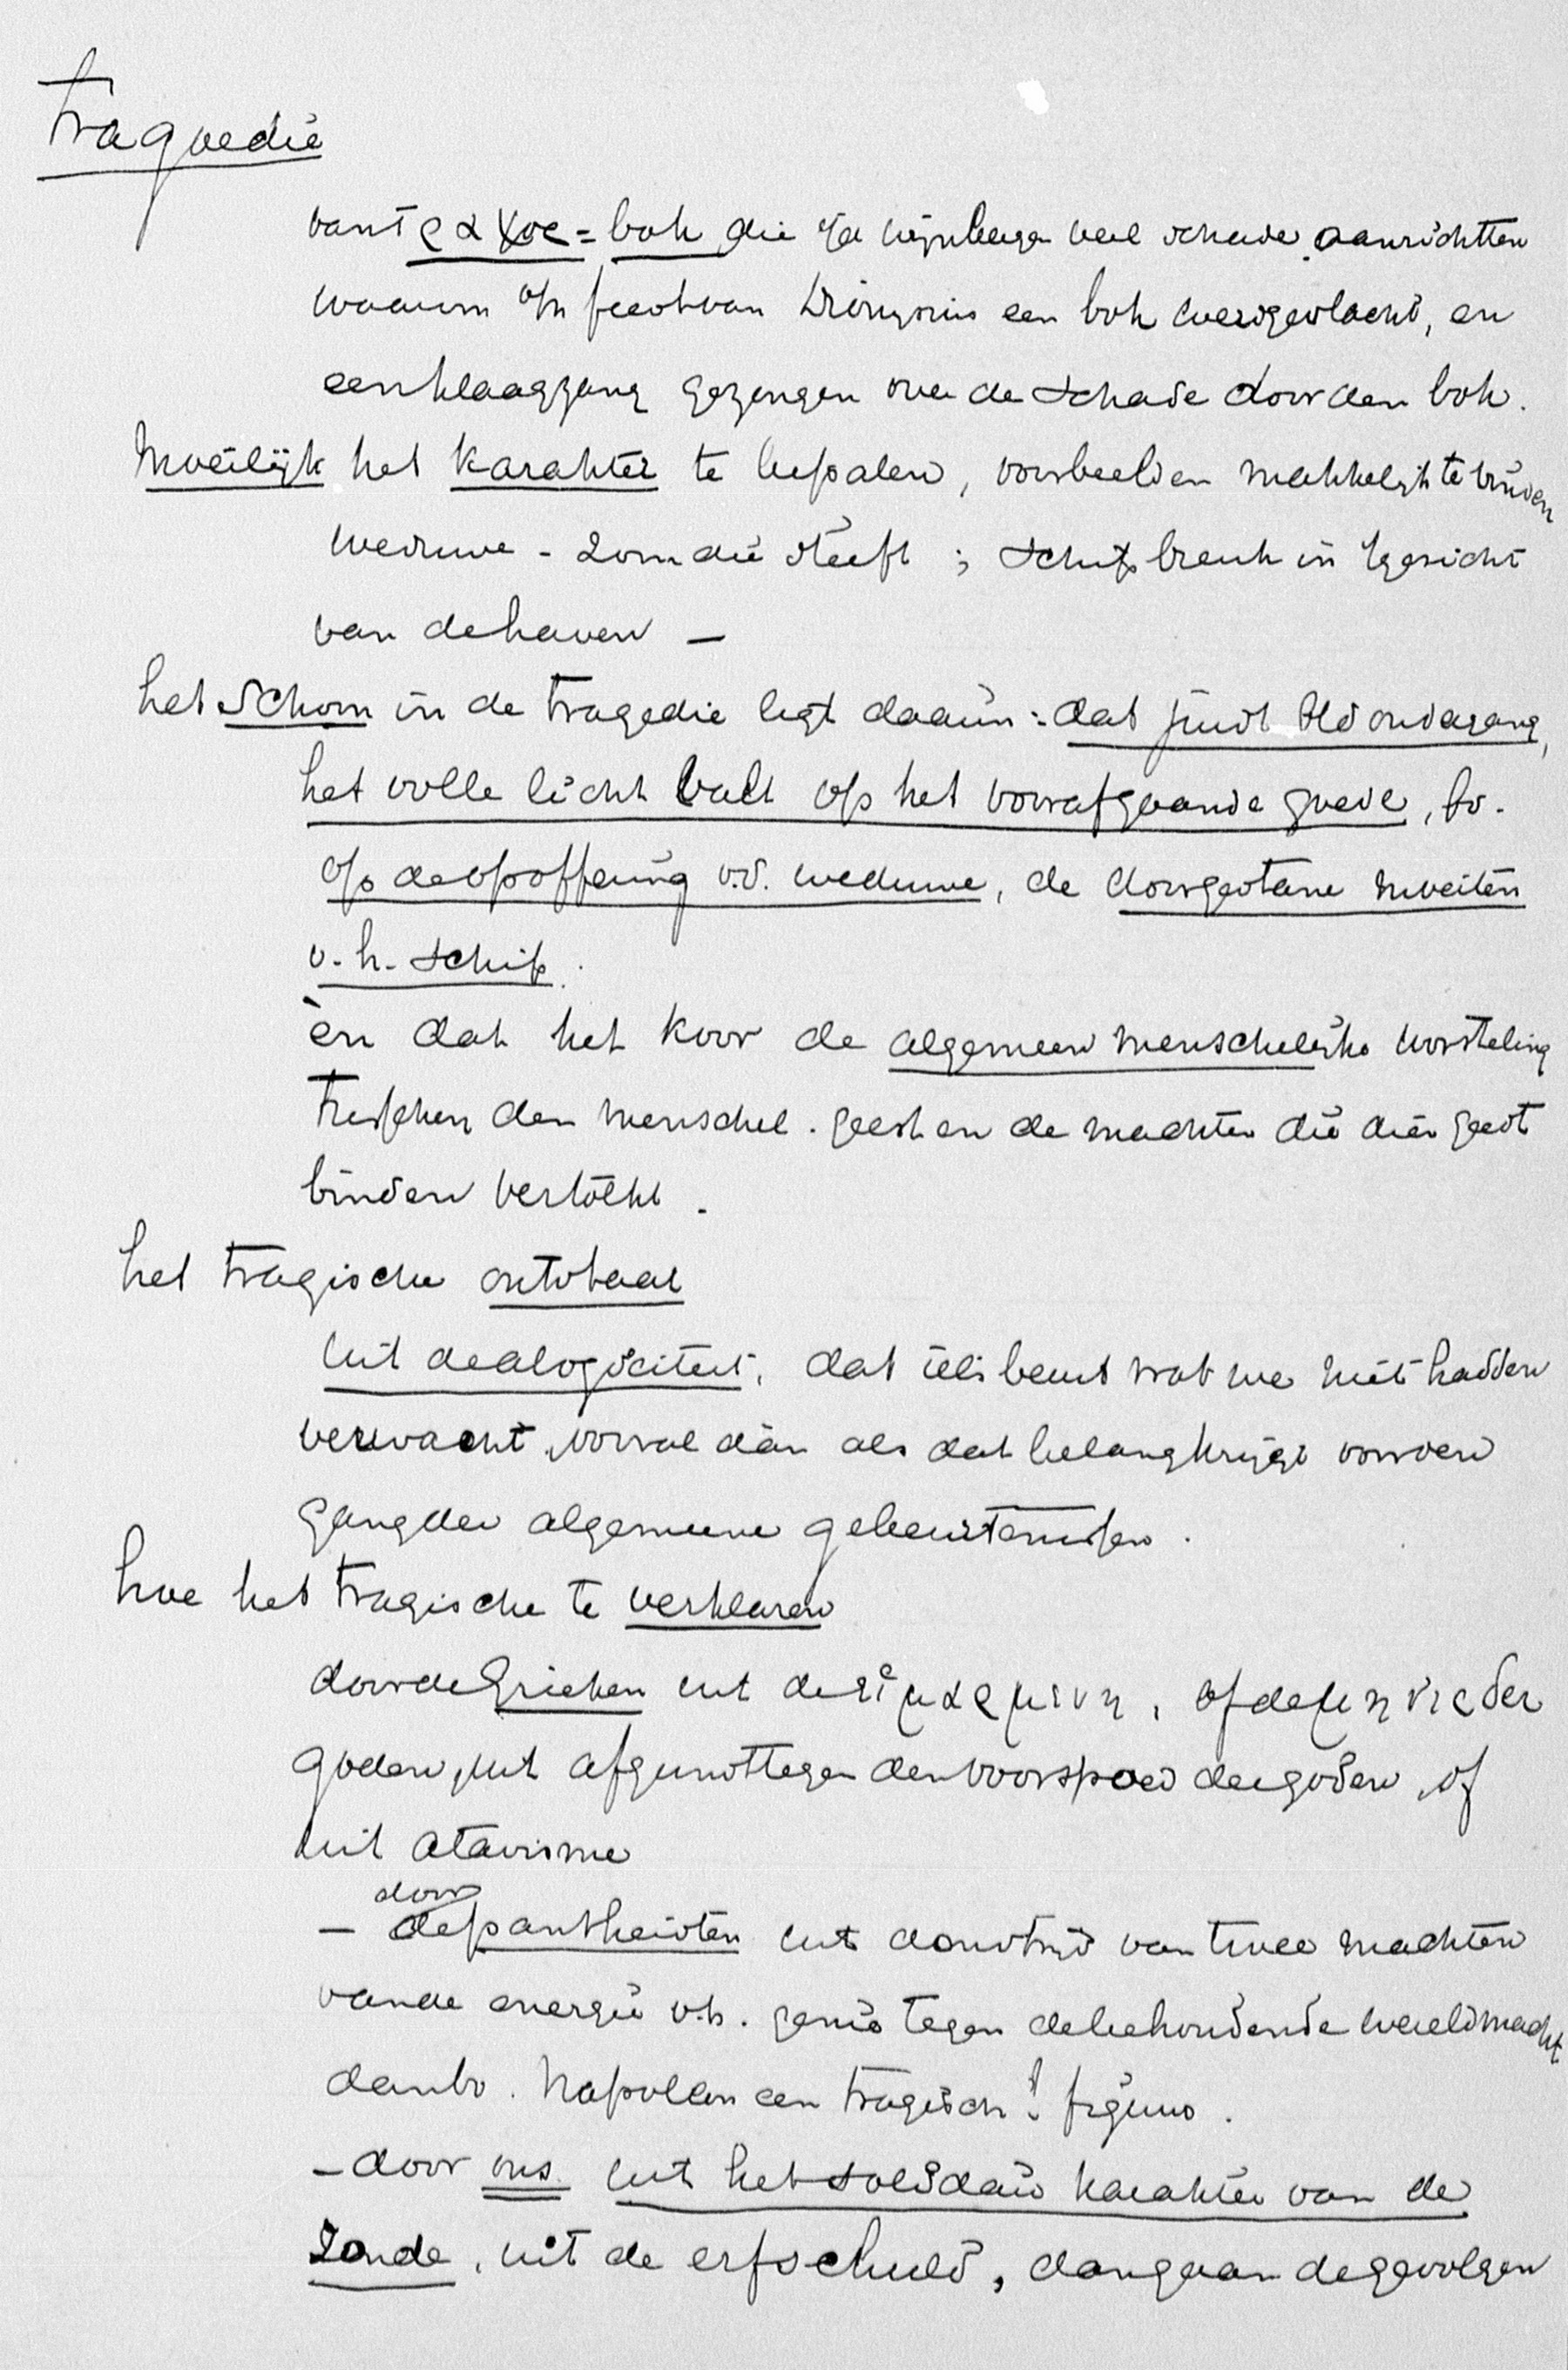 tragoedie
van τραγος = bok die in wijnbergen veel schade aanrichtten
waarom op feest van Dionysius een bok werd geslacht, en
een klaagzang gezongen over de schade door den bok.
Moeilijk het karakter te bepalen, voorbeelden makkelijk te vinden
weduwe - zoon die sterft ; schipbreuk in 't gezicht
van de haven -
het schoon in de tragedie ligt daarin : dat juist bij ondergang,
het volle licht valt op het voorafgaande goede, bv.
op de opoffering v.d. weduwe, de doorgestane moeiten
v. h. schip.
èn dat het koor de algemeen menschelijke worsteling
tusschen den menschel. geest en de machten die dien geest
binden vertolkt.
het tragische ontstaat
uit de alogiciteit, dat iets beurt wat we niet hadden
verwacht, vooral dàn als dat belang krijgt voor den
gang der algemeene gebeurtenissen.
hoe het tragische te verklaren
door de Grieken uit de εἱμαρμενη, of de μηνις der
goden, uit afgunst tegen den voorspoed der goden, of
uit atavisme
door
- de pantheisten uit den strijd van twee machten
van de energie v.h. genie tegen de behoudende wereldmacht
dan bv. Napoleon een tragisch! figuur.
- door ons uit het solidair karakter van de
zonde, uit de erfschuld, dan gaan de gevolgen